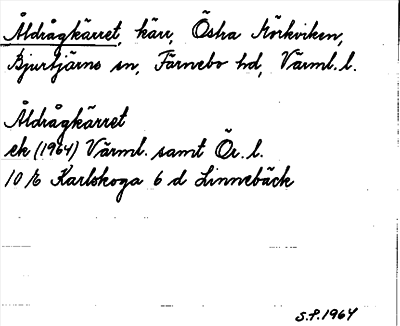 Åldrågkärret, kärr, Östra Mörkviken,
Bjurtjärns sn, Färnebo hd, Värml. l.
Åldrågkärret
ek (1964) Värml. samt Ör. l.
10 E Karlskoga 6 d Linnebäck
S.P. 1964